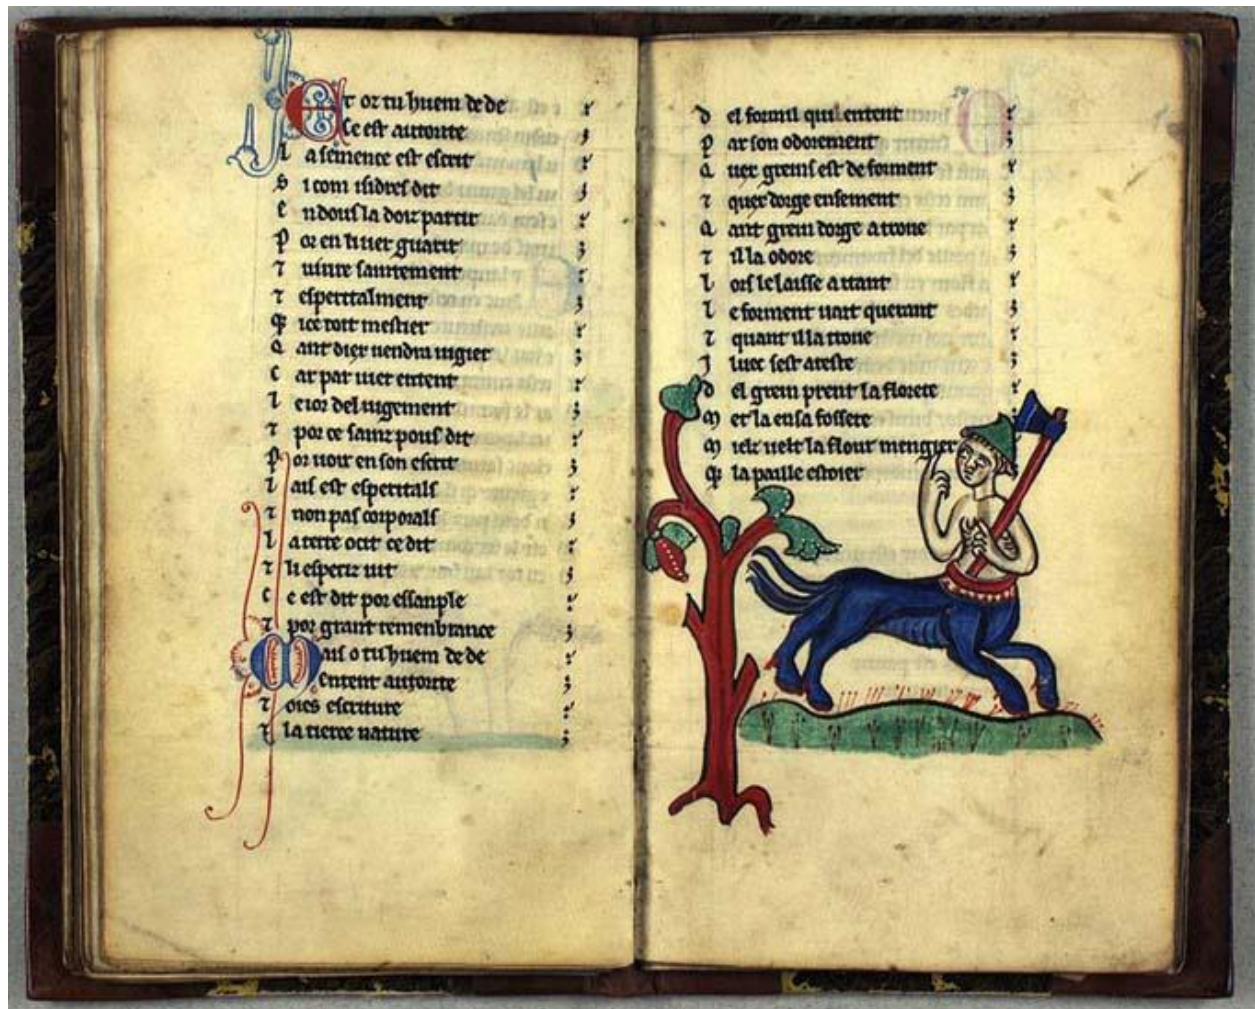 E T or tu huem de de
Ce est autorite
L a semence est escrit
S i com isidres dit
E n dous la doiz partir
P or en liuer guarir
⁊ uiure saintement
⁊ esperitalment
Q ice toit mestier
Q ant diex uendra iugier
C ar par iuer entent
L e ior del iugement
⁊ por ce sainz pous dit
P or uoir en son escrit
L ais est esperitals
⁊ non pas corporals
L a terre ocit ce dit
⁊ li esperiz uit
C e est dit por essanple
⁊ por grant remenbrance
M ais o tu huem de de
E entent autorite
⁊ oies escriture
⁊ la tierce nature
D el formil qui entent
P ar son odorement
Q uex greins est de forment
⁊ quex dorge ensement
Q ant grein dorge a troue
⁊ il la odore
L ors le laisse a tant
L e forment uait querant
⁊ quant il la troue
I luec sest areste
D el grein prent la florete
M et la en sa fossete
M ielz uelt la flour mengier
Q la paille estoier